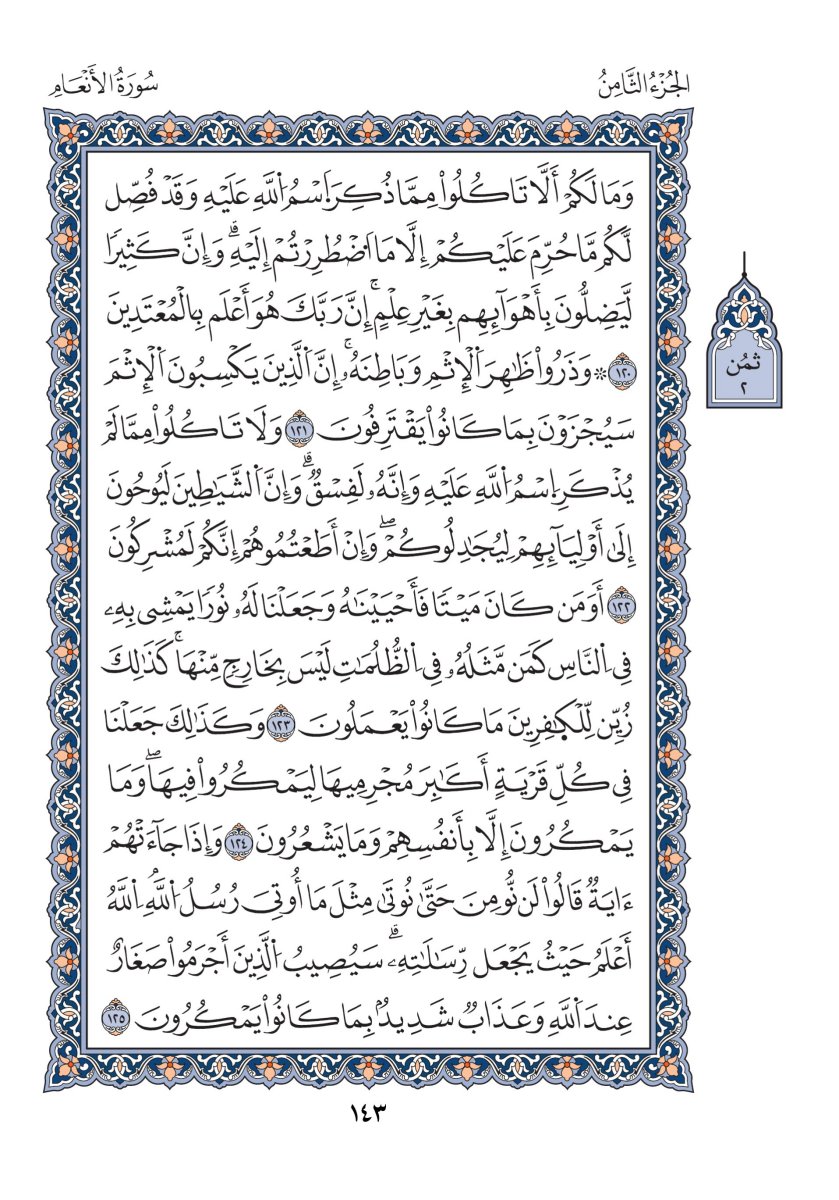 الجُزْءُ الثَّامِنُ
سُورَةُ الأَنْعَامِ
وَمَا لَكُمْ أَلَّا تَاكُلُواْ مِمَّا ذُكِرَ ٱسْمُ ٱللَّهِ عَلَيْهِ وَقَدْ فُصِّل
لَّكُم مَّا حُرِّمَ عَلَيْكُمْ إِلَّا مَا ٱضْطُرِرْتُمْ إِلَيْهِۗ وَإِنَّ كَثِيرٗا
لَّيَضِلُّونَ بِأَهْوَآئِهِم بِغَيْرِ عِلْمٍۚ إِنَّ رَبَّكَ هُوَ أَعْلَم بِالْمُعْتَدِينَ
١٢٠ ۞ وَذَرُواْ ظَٰهِرَ ٱلْإِثْمِ وَبَاطِنَهُۥٓۚ إِنَّ ٱلَّذِينَ يَكْسِبُونَ ٱلْإِثْمَ
سَيُجْزَوْنَ بِمَا كَانُواْ يَقْتَرِفُونَ ١٢١ وَلَا تَاكُلُواْ مِمَّا لَمْ
يُذْكَرِ ٱسْمُ ٱللَّهِ عَلَيْهِ وَإِنَّهُۥ لَفِسْقٞۗ وَإِنَّ ٱلشَّيَٰطِينَ لَيُوحُونَ
إِلَىٰ أَوْلِيَآئِهِمْ لِيُجَٰدِلُوكُمْۖ وَإِنْ أَطَعْتُمُوهُمْ إِنَّكُمْ لَمُشْرِكُونَ
١٢٢ أَوَمَن كَانَ مَيْتٗا فَأَحْيَيْنَٰهُ وَجَعَلْنَا لَهُۥ نُورٗا يَمْشِي بِهِۦ
فِي ٱلنَّاسِ كَمَن مَّثَلُهُۥ فِي ٱلظُّلُمَٰتِ لَيْسَ بِخَارِجٖ مِّنْهَاۚ كَذَٰلِكَ
زُيِّن لِّلْكٰفِرِينَ مَا كَانُواْ يَعْمَلُونَ ١٢٣ وَكَذَٰلِكَ جَعَلْنَا
فِي كُلِّ قَرْيَةٍ أَكَٰبِرَ مُجْرِمِيهَا لِيَمْكُرُواْ فِيهَاۖ وَمَا
يَمْكُرُونَ إِلَّا بِأَنفُسِهِمْ وَمَا يَشْعُرُونَ ١٢٤ وَإِذَا جَآءَتْهُمْ
ءَايَةٞ قَالُواْ لَن نُّومِنَ حَتَّىٰ نُوتَىٰ مِثْلَ مَا أُوتِيَ رُسُلُ ٱللَّهِۘ ٱللَّهُ
أَعْلَمُ حَيْثُ يَجْعَل رِّسَالَٰتِهِۦۗ سَيُصِيبُ ٱلَّذِينَ أَجْرَمُواْ صَغَارٌ
عِندَ ٱللَّهِ وَعَذَابٞ شَدِيدُۢ بِمَا كَانُواْ يَمْكُرُونَ ١٢٥
ثمُن
٢
١٤٣